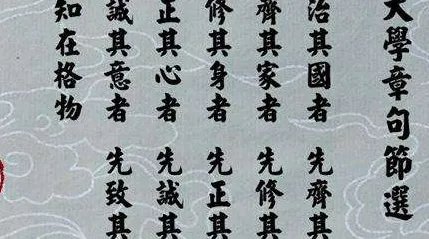 大學章句節選
治其國者 先齊其
齊其家者 先修其
修其身者 先正其
正其心者 先誠其
誠其意者 先致其
知在格物